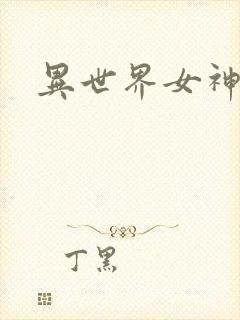 異世界女神
丁黑